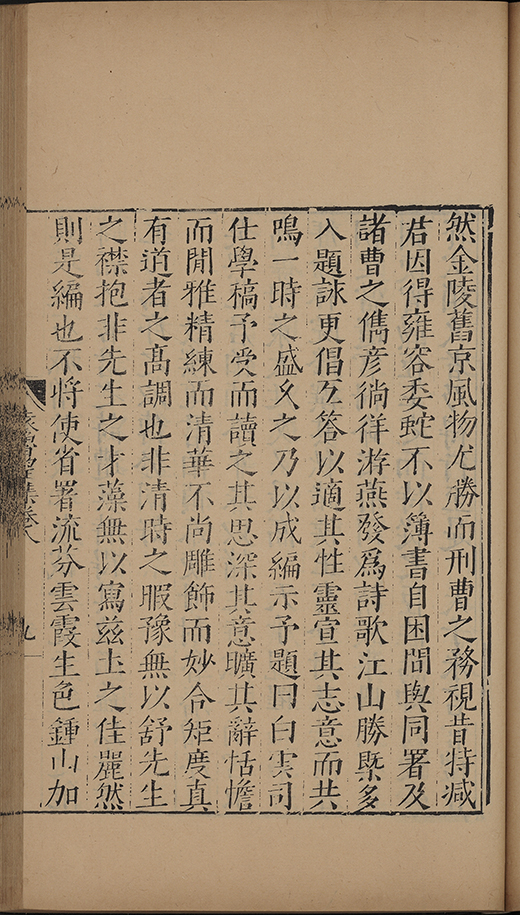 然金陵舊京風物尤勝而刑曹之務視昔特減
君因得雍容委蛇不以簿書自困間與同署及
諸曹之儁彦徜徉游燕發爲詩歌江山勝槩多
入題詠更倡互答以適其性靈宣其志意而共
鳴一時之盛乆之乃以成編示予題曰白雲司
仕學稿予受而讀之其思深其意曠其辭恬憺
而閒雅精練而清華不尚雕飾而妙合矩度真
有道者之髙調也非清時之暇豫無以舒先生
之襟抱非先生之才藻無以寫兹土之佳麗然
則是編也不將使省署流芬雲霞生色鍾山加
集卷八
九